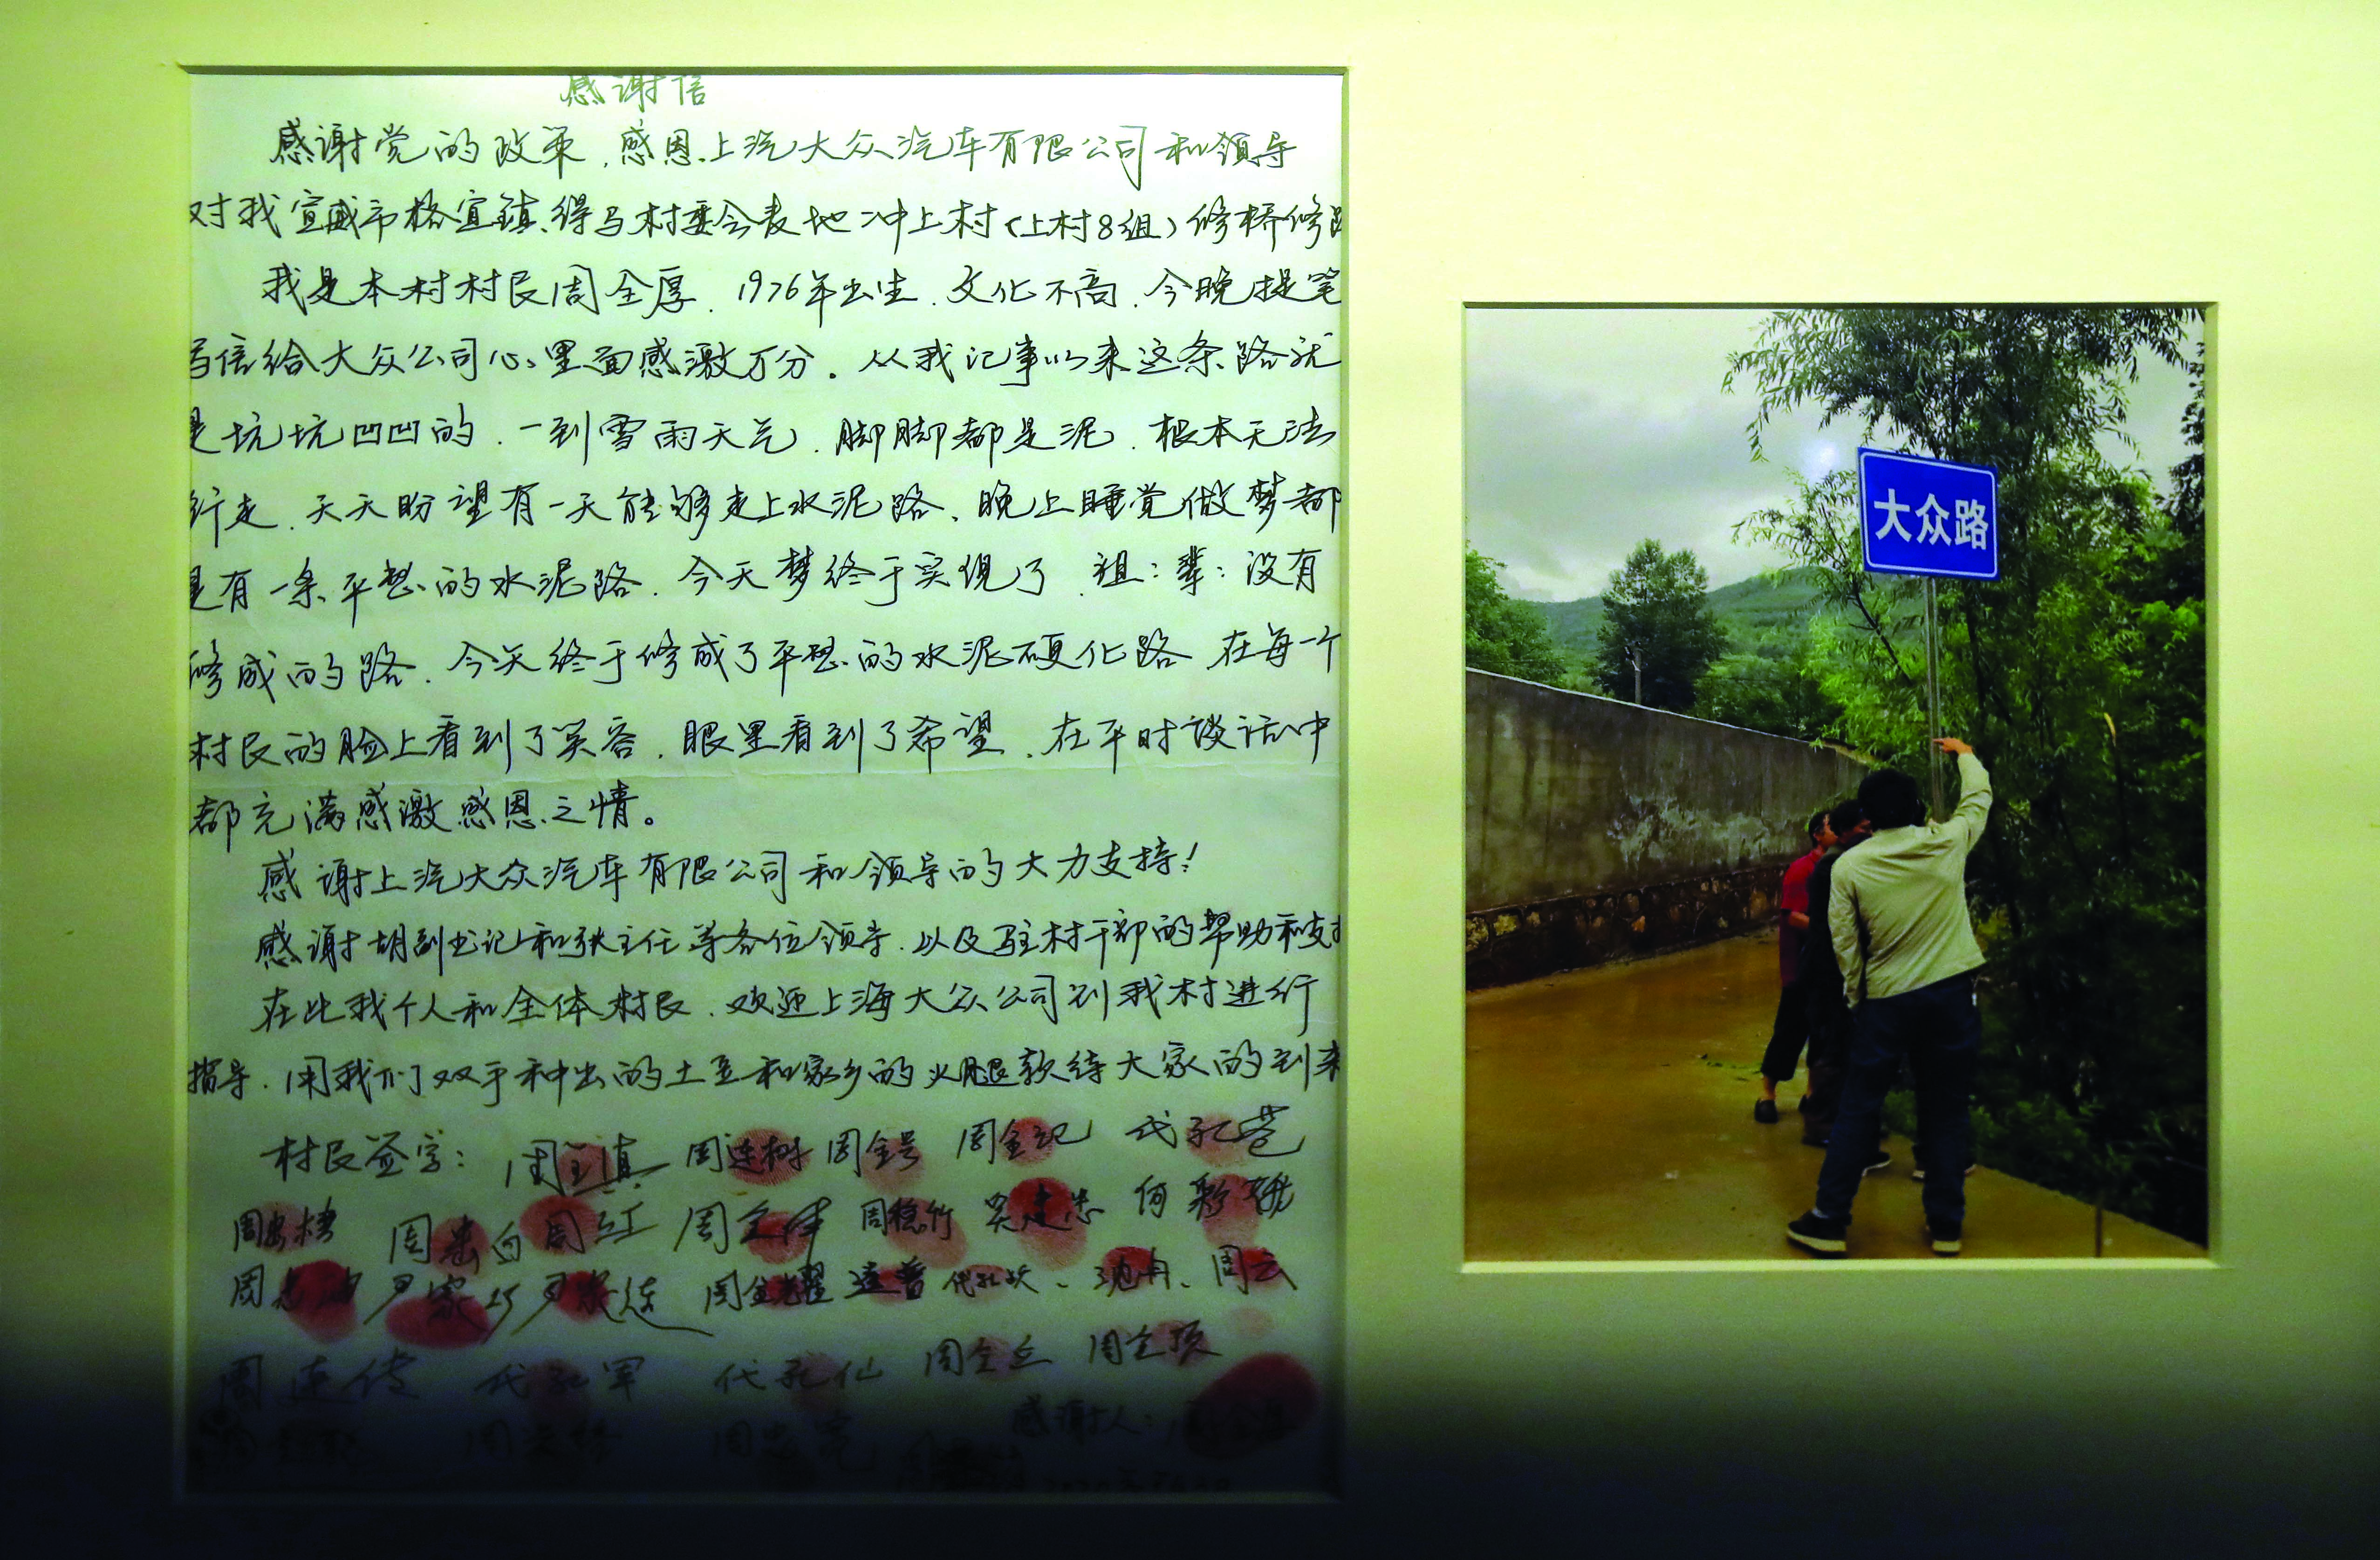 感谢信
感谢党的政策.感恩上汽大众汽车有限公司和领导
对我宣威市格宜镇.得马村委会表地冲上村(上村8组)修桥修路
我是本村村民周全厚.1976年出生.文化不高.今晚提笔
写信给大众公司心里面感激万分。从我记事以来这条路就
是坑坑凹凹的.一到雪雨天气.脚脚都是泥.根本无法
行走.天天盼望有一天能够走上水泥路、晚上睡觉做梦都
是有一条平整的水泥路.今天梦终于实现了.祖:辈:没有
修成的路.今天终于修成了平整的水泥硬化路.在每一个
村民的脸上看到了笑容.眼里看到了希望.在平时谈话中
都充满感激感恩之情。
感谢上汽大众汽车有限公司和领导的大力支持!
感谢胡副书记和张主任等各位领导.以及驻村干部的帮助和支持
在此我个人和全体村民.欢迎上海大众公司到我村进行
指导.用我们双手种出的土豆和家乡的火腿款待大家的到来
村民签字: 周连树 周全号 周全记 代孔苍
周忠向 周红 周稳竹
周金耀 周云
周连传 代孔军 代孔仙 周全丘 周全顶
感谢人:
大众路